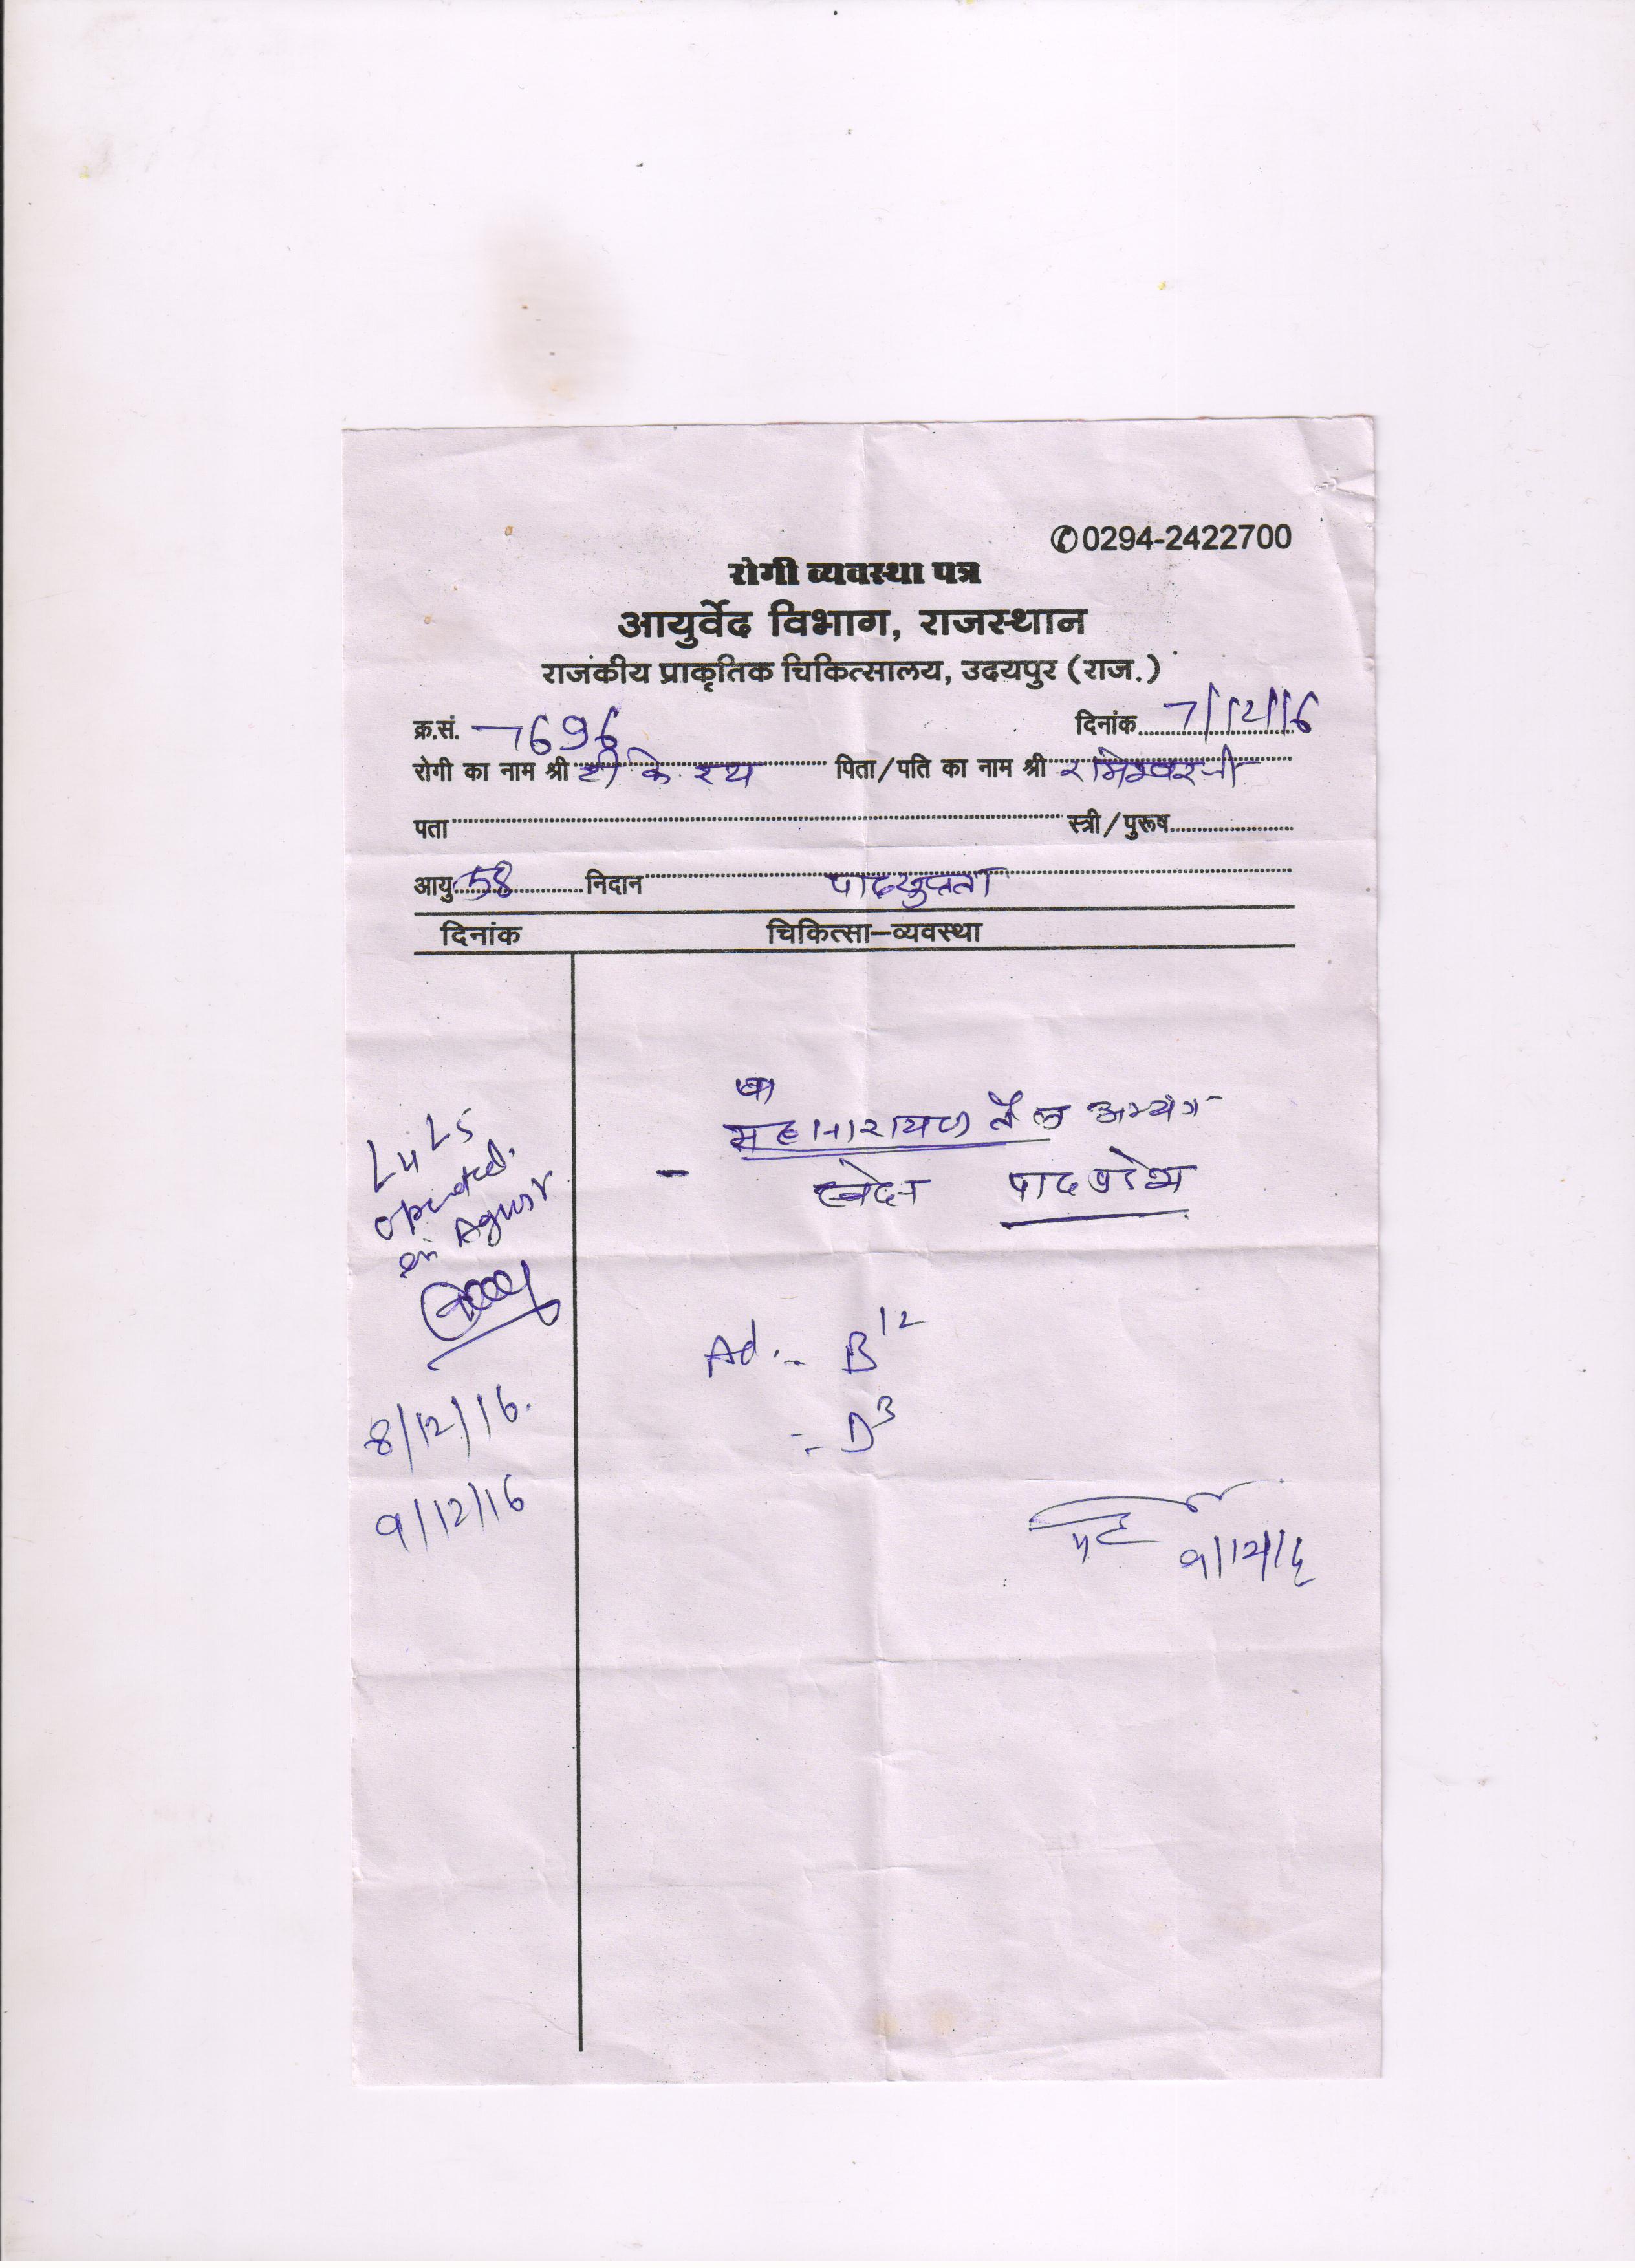 ✆0294-2422700
रोगी व्यवस्था पत्र
आयुर्वेद विभाग, राजस्थान
राजकीय प्राकृतिक चिकित्सालय, उदयपुर (राज.)
क्र.सं. 7696 दिनांक 7/12/16
रोगी का नाम श्री टी के रथ पिता/पति का नाम श्री रामेश्वर जी
पता स्त्री/पुरूष
आयु 58 निदान पादसुप्तता
दिनांक चिकित्सा–व्यवस्था
महानारायण तैल अभ्यंग
- स्वेदन पाद प्रदेश
L4 L5
operated.
in Agust
Ad.- B12
:- D3
8/12/16.
9/12/16
9/12/16